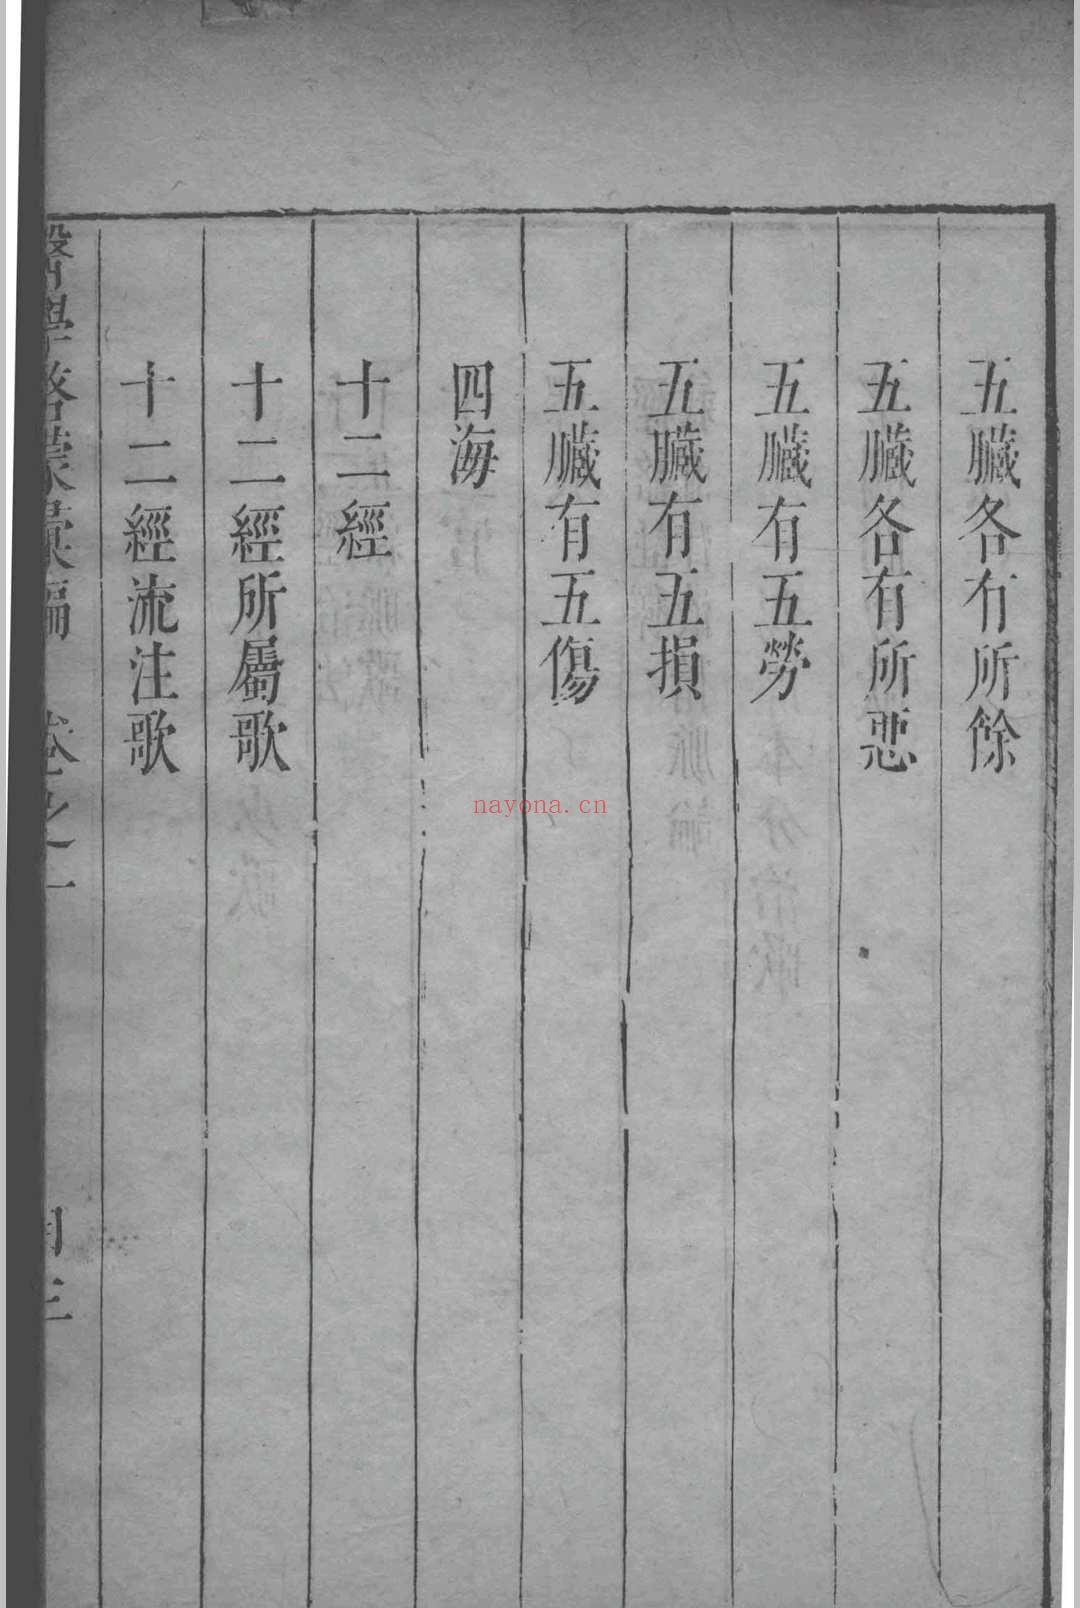 五臟各有所餘
五臟各有所惡
五臟有五勞
五臟有五損
五臟有五傷
四海
十二經
十二經所屬歌
十二經流注歌
醫學啓蒙彙編 卷之一 目三
nayona.cn